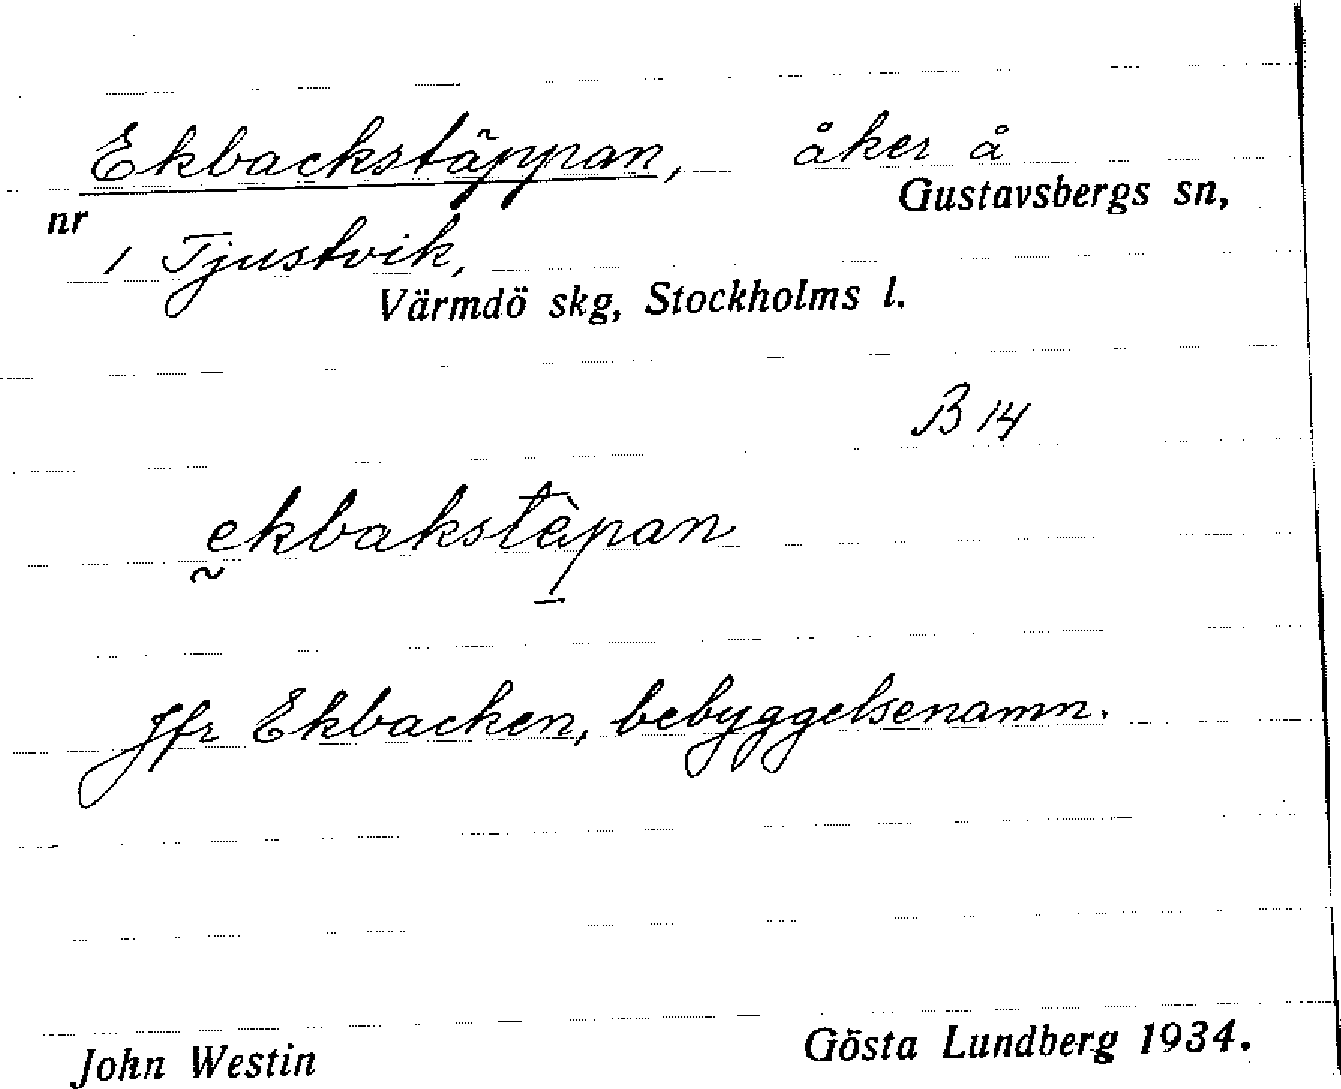 Ekbackstäppan, åker å
Gustavsbergs sn,
nr
1 Tjustvik,
Värmdö skg, Stockholms l.
B 14
ekbakstèpan
Jfr Ekbacken, bebyggelsenamn.
John Westin Gösta Lundberg 1934.